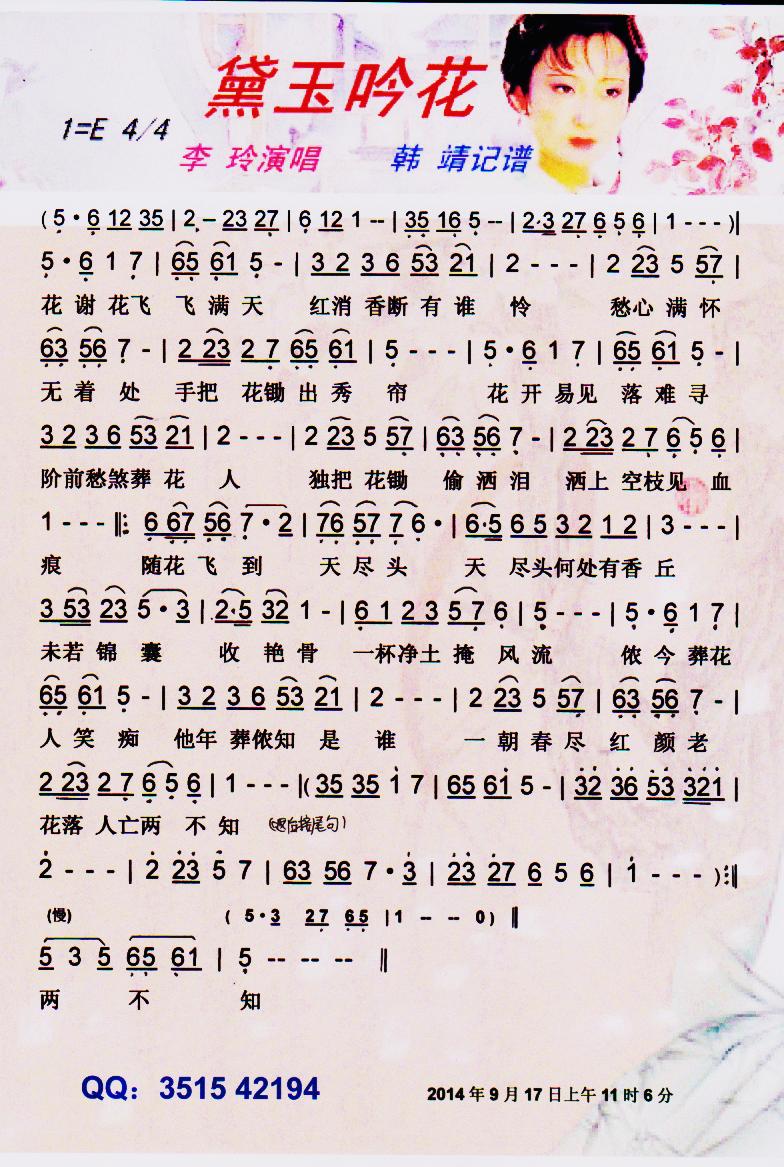 黛玉吟花
1=E 4/4
李 玲演唱 韩 靖记谱
(5·6 12 35|2 – 23 27|6 12 1 --|35 16 5 --|2·3 27 6 5 6|1 - - - )‖
5·6 1 7|65 61 5 -|3 2 3 6 53 21|2 - - -|2 23 5 57|
花 谢 花飞 飞 满 天 红消 香断 有 谁 怜 愁心 满 怀
63 56 7 -|2 23 2 7 65 61|5 - - -|5·6 1 7|65 61 5 -|
无 着 处 手把 花锄 出 秀 帘 花 开 易见 落 难 寻
3 2 3 6 53 21|2 - - -|2 23 5 57|63 56 7 -|2 23 2 7 6 5 6|
阶前愁煞葬 花 人 独把 花锄 偷 洒 泪 洒上 空枝见 血
1 - - -‖: 6 67 56 7·2|76 57 7 6·|6·5 6 5 3 2 1 2|3 - - -|
痕 随花 飞 到 天 尽 头 天 尽头何处有香 丘
3 53 23 5·3|2·5 32 1 -|6 1 2 3 5 7 6|5 - - -|5·6 1 7|
未若 锦 囊 收 艳 骨 一杯净土 掩 风 流 侬 今 葬花
65 61 5 -|3 2 3 6 53 21|2 - - -|2 23 5 57|63 56 7 -|
人 笑 痴 他年 葬侬知 是 谁 一 朝 春 尽 红 颜 老
2 23 2 7 6 5 6|1 - - -|(35 35 1 7|65 61 5 -|32 36 53 321|
花落 人亡两 不 知 接尾句)
2 - - -|2 23 5 7|63 56 7·3|23 27 6 5 6|1 - - - ):‖
(慢) ( 5·3 27 65 |1 -- -- 0)‖
5 3 5 65 61|5 -- -- --‖
两 不 知
QQ：3515 42194 2014 年 9 月 17 日上午 11 时 6 分